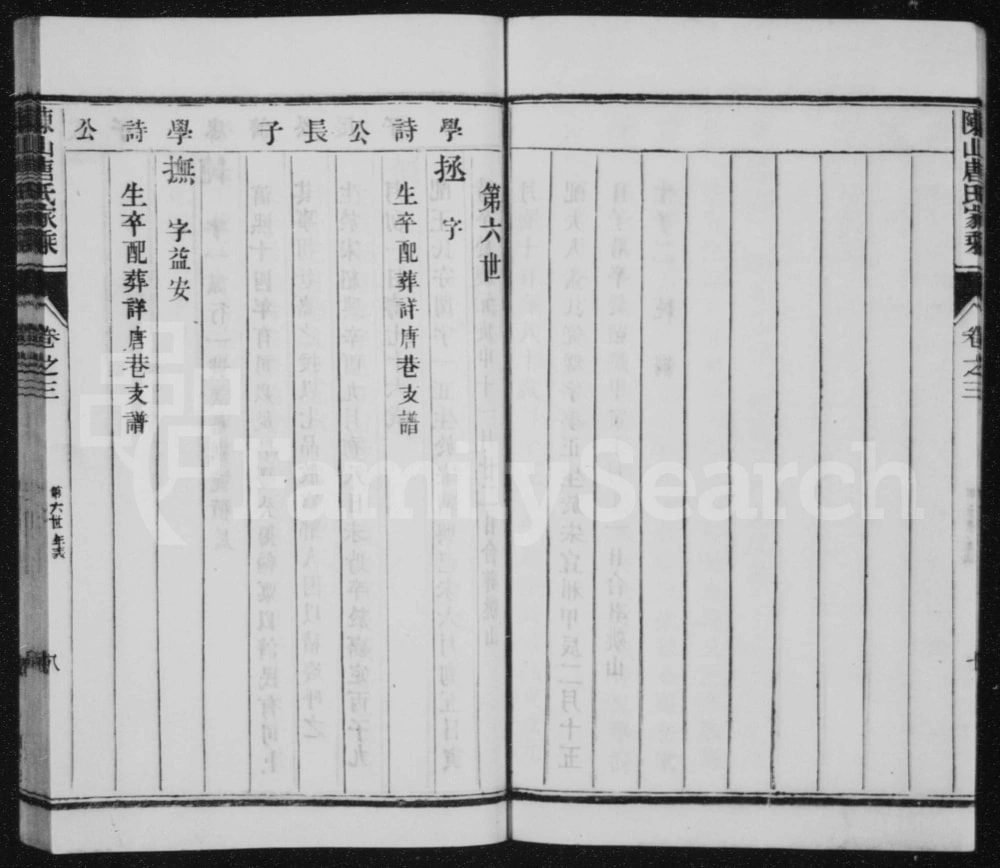 陳山唐氏家乘
卷之三
第六世
學詩公長子
拯 字
生卒配葬詳唐巷支譜
學詩公
撫 字益安
生卒配葬詳唐巷支譜
陳山唐氏家乘
卷之三
第六世年表
八
FamilySearch